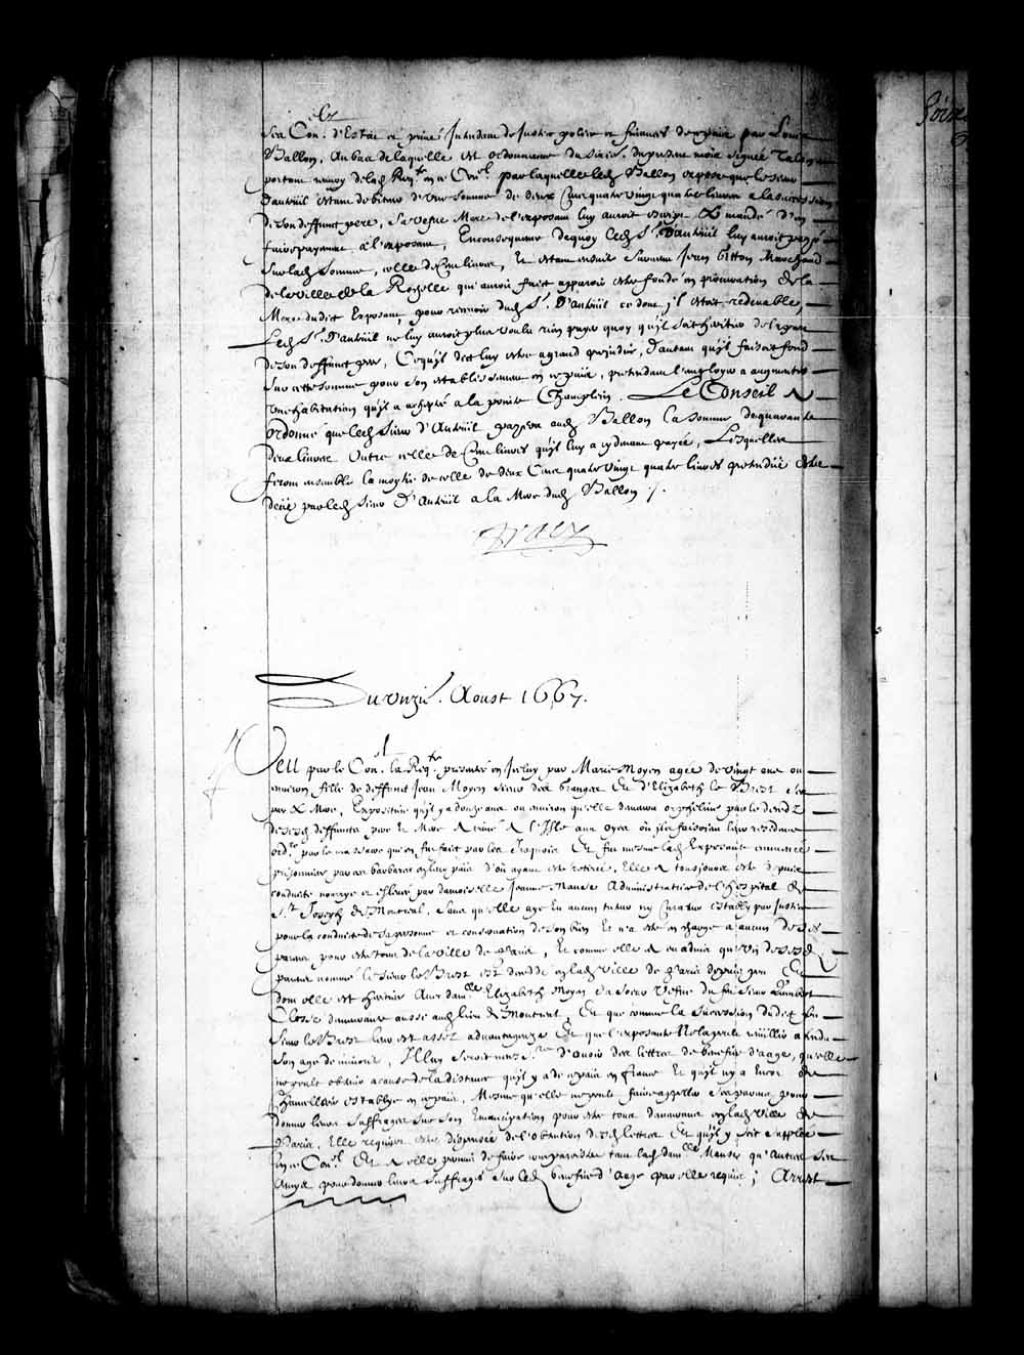 ses Con.ers d'Estat et privé Intendant de Justice police et finances de ce païs par Louis
Ballon, Au bas de laquelle est ordonnance du sixie. du present mois signée Talon
portant renvoy de lad Req.te en ce Con.el par laquelle led Ballon expose que le sieur
Dauteuil estant debiteur d'une somme de deux Cent quatre vingt quatre livres a la succession
de son deffunct pere, Sa vefve Mere de l'exposant luy auroit escript & mandé d'en
faire payement a l'exposant, En consequence de quoy led S.r D'auteuil luy auroit payé
sur lad somme, celle de Cent livres, Et estant ensuite survenu Jean Gitton Marchand
de la ville de la Rochelle qui auroit fait apparoir estre fondé en procuration de la
Mere dudict Exposant, pour recevoir dud S.r D'auteuil ce dont il estoit redevable,
Led S.r D'auteuil ne luy auroit plus voulu rien payer quoy qu'il soit heritier
de son deffunct pere, Ce qu'il dict luy estre a grand prejudice, D'autant qu'il faisoit fond
sur cette somme pour son establissement en ce païs, pretendant l'employer a augmenter
une habitation qu'il a acheptée a la pointe Champlein. Le Conseil a
ordonné que led Sieur d'Auteuil payera aud Ballon la somme de quarante
deux livres Outre celle de Cent livres qu'il luy a cy devant payée, Lesquelles
feront ensemble la moytié de celle de deux Cent quatre vingt quatre livres pretendüe estre
deüe par led Sieur D'auteuil a la Mere dud Ballon /.
Tracy
Du unzie. Aoust 1667.
Veu par le Con.el la Req.te presentée en Iceluy par Marie Moyen agée de vingt ans ou
environ fille de deffunct Jean Moyen Sieur des Granges Et d'Elizabeth le Bret ses
pere & Mere, Expositive qu'il y a douze ans ou environ qu'elle demeura orpheline par le decedz
desd deffuncts pere Et Mere a l'Isle aux oyes ou ils faisoient leur residence
ord.re par le massacre qui en fut fait par les Iroquois Et fut mesme lad Exposante emmenée
prisonniere par ces barbares en leur païs d'où ayant esté retirée, Elle a tousjours esté depuis
conduite nourrye et eslevée par damoiselle Jeanne Manse Administratrice de l'hospital de
S.t Joseph de Montreal, Sans qu'elle aye Eu aucun tuteur ny Curateur estably par justice
pour la conduite de sa personne et conservation de son bien Et n'a esté en charge a aucun de ses
parens, pour estre tous de la ville de Paris, Et comme elle a eu advis qu'un de sesd
parens nommé le Sieur le Bret est decedé en lad ville de Paris depuis peu Et
dont elle est heritiere Avec dam.lle Elizabeth Moyen sa soeur Vefve du feu Sieur Lambert
Closse demeurante aussi aud lieu de Montreal, Et que comme la succession dudict feu
Sieur le Bret leur est assez advantageuse Et que l'exposante Ne la peult recueillir attendu
son age de minorité, Il luy seroit necess.re d'avoir des lettres de benefice d'aage, qu'elle
ne peult obtenir a cause de la distance qu'il y a de ce païs en france Et qu'il n'y a Encore de
Chancellerie establye en ce païs, Mesme qu'elle ne peult faire appeller ses parens pour
donner leurs suffrages sur son Emancipation pour estre tous demeurans en lad ville de
Paris. Elle requiert estre dispensée de l'obtention desd lettres Et qu'il y soit suppléé
en ce Con.el Et a elle permis de faire comparoistre tant lad dam.lle Manse qu'autres ses
Amys pour donner leurs suffrages sur led benefice d'aage par elle requis; Arrest